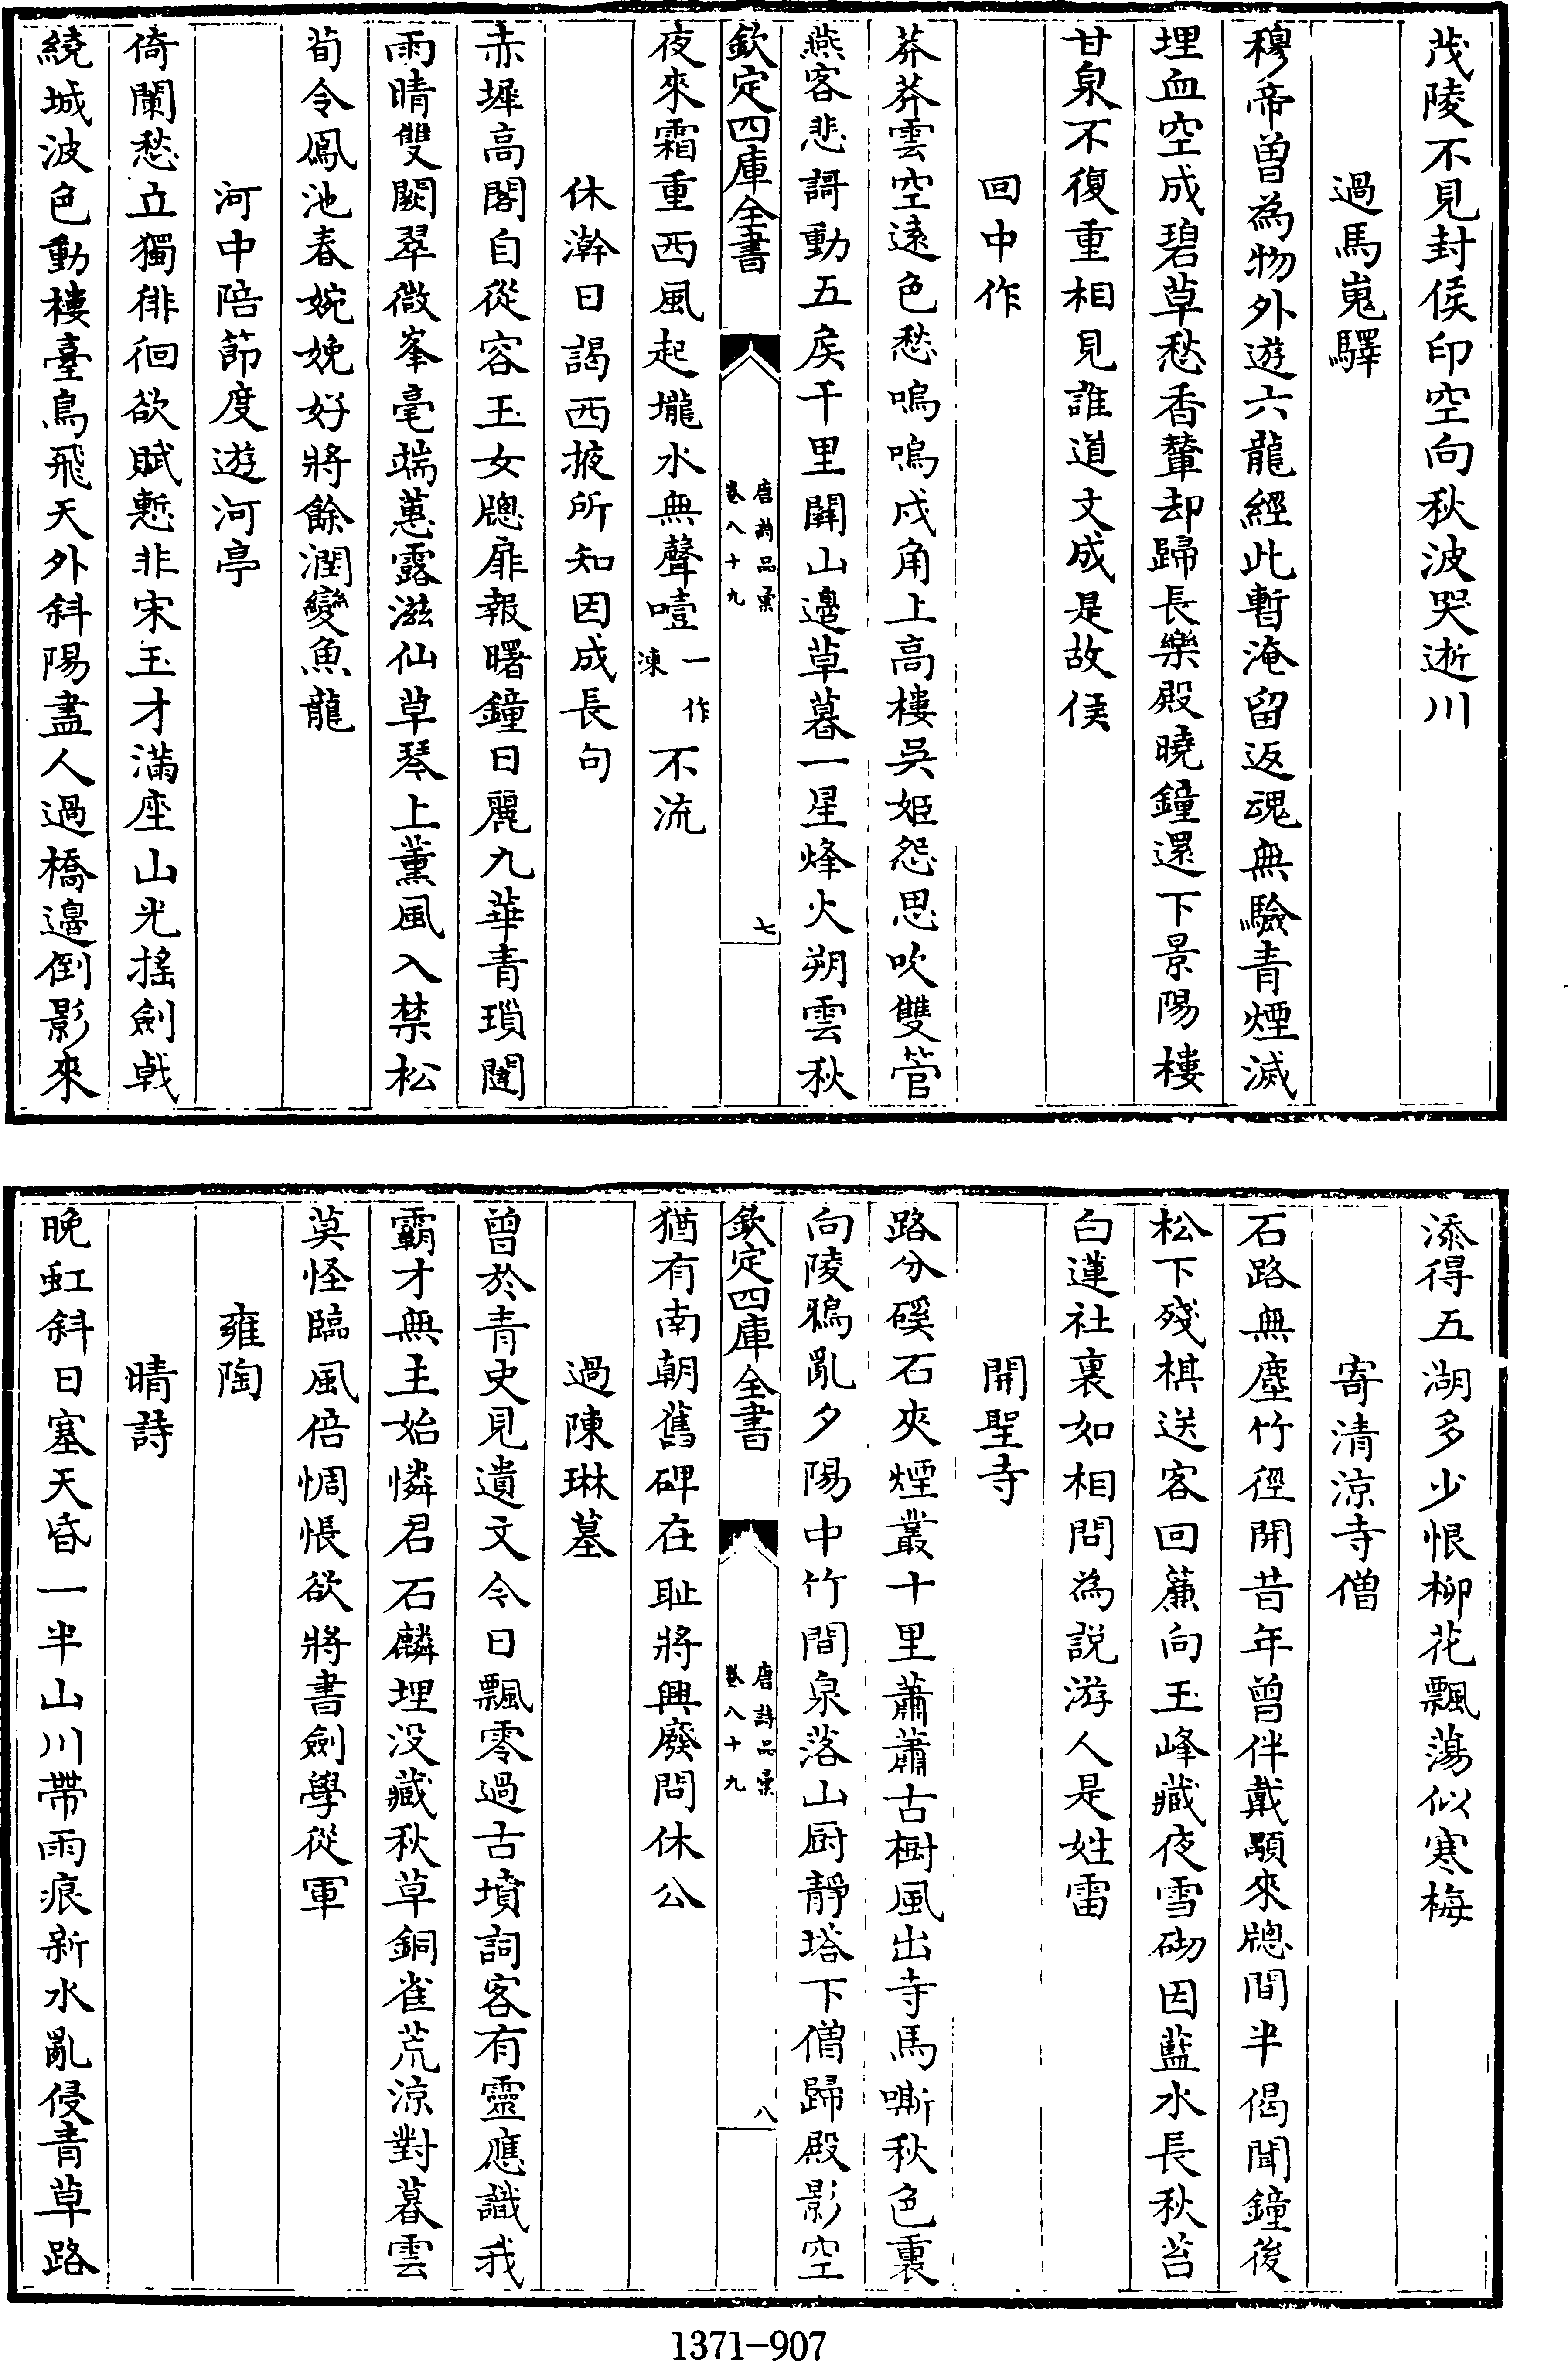 茂陵不見封侯印空向秋波哭逝川
過馬嵬驛
穆帝曾為物外遊六龍經此暫淹留返魂無驗青煙滅
埋血空成碧草愁香輦却歸長樂殿曉鐘還下景陽樓
甘泉不復重相見誰道文成是故侯
回中作
莽莽雲空遠色愁嗚嗚戍角上高樓吳姬怨思吹雙管
燕客悲謌動五侯千里關山邉草暮一星烽火朔雲秋
欽定四庫全書
唐詩品彙
卷八十九
七
夜來霜重西風起壠水無聲噎一作凍不流
休澣日謁西掖所知因成長句
赤墀高閣自從容玉女牕扉報曙鐘日麗九華青瑣闥
雨晴雙闕翠微峯毫端蕙露滋仙草琴上薰風入禁松
荀令鳳池春婉娩好將餘潤變魚龍
河中陪節度遊河亭
倚闌愁立獨徘徊欲賦慙非宋玉才滿座山光搖劍戟
繞城波色動樓臺鳥飛天外斜陽盡人過橋邉倒影來
添得五湖多少恨柳花飄蕩似寒梅
寄清涼寺僧
石路無塵竹徑開昔年曾伴戴顒來牕間半偈聞鐘後
松下殘棋送客回簾向玉峰藏夜雪砌因藍水長秋苔
白蓮社裏如相問為説游人是姓雷
開聖寺
路分磎石夾煙叢十里蕭蕭古樹風出寺馬嘶秋色裏
向陵鴉亂夕陽中竹間泉落山厨靜塔下僧歸殿影空
欽定四庫全書
唐詩品彙
卷八十九
八
猶有南朝舊碑在耻將興廢問休公
過陳琳墓
曾於青史見遺文今日飄零過古墳詞客有靈應識我
霸才無主始憐君石麟埋没藏秋草銅雀荒涼對暮雲
莫怪臨風倍惆悵欲將書劍學從軍
雍陶
晴詩
晚虹斜日塞天昏一半山川帶雨痕新水亂侵青草路
1371-907